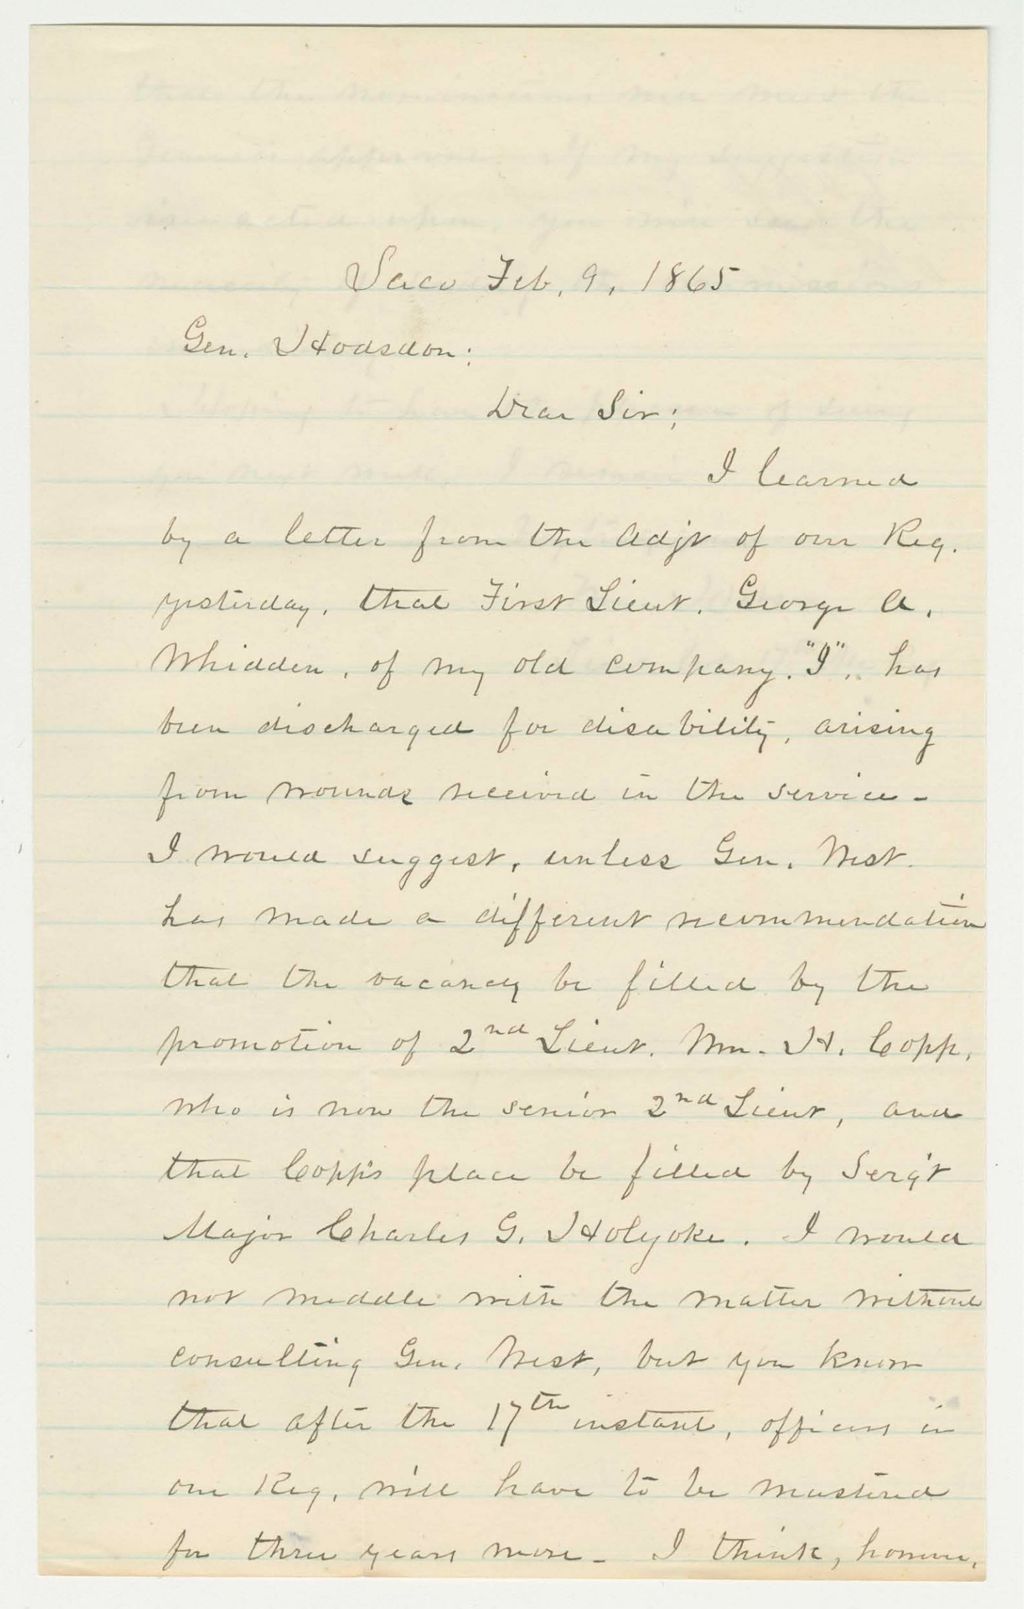 Saco Feb. 9, 1865
Gen. Hodsdon:
Dear Sir;
I learned
by a letter from the Adjt of our Reg.
yesterday, that First Lieut. George A.
Whidden, of my old company, "I", has
been discharged for disability, arising
from wounds received in the service -
I would suggest, unless Gen. West
has made a different recommendation
that the vacancy be filled by the
promotion of 2nd Lieut. Wm. H. Copp,
who is now the senior 2nd Lieut, and
that Copp's place be filled by Serg't
Major Charles G. Holyoke. I would
not meddle with the matter without
consulting Gen. West, but you know
that after the 17th instant, officers in
our Reg. will have to be mustered
for three years more - I think, however,